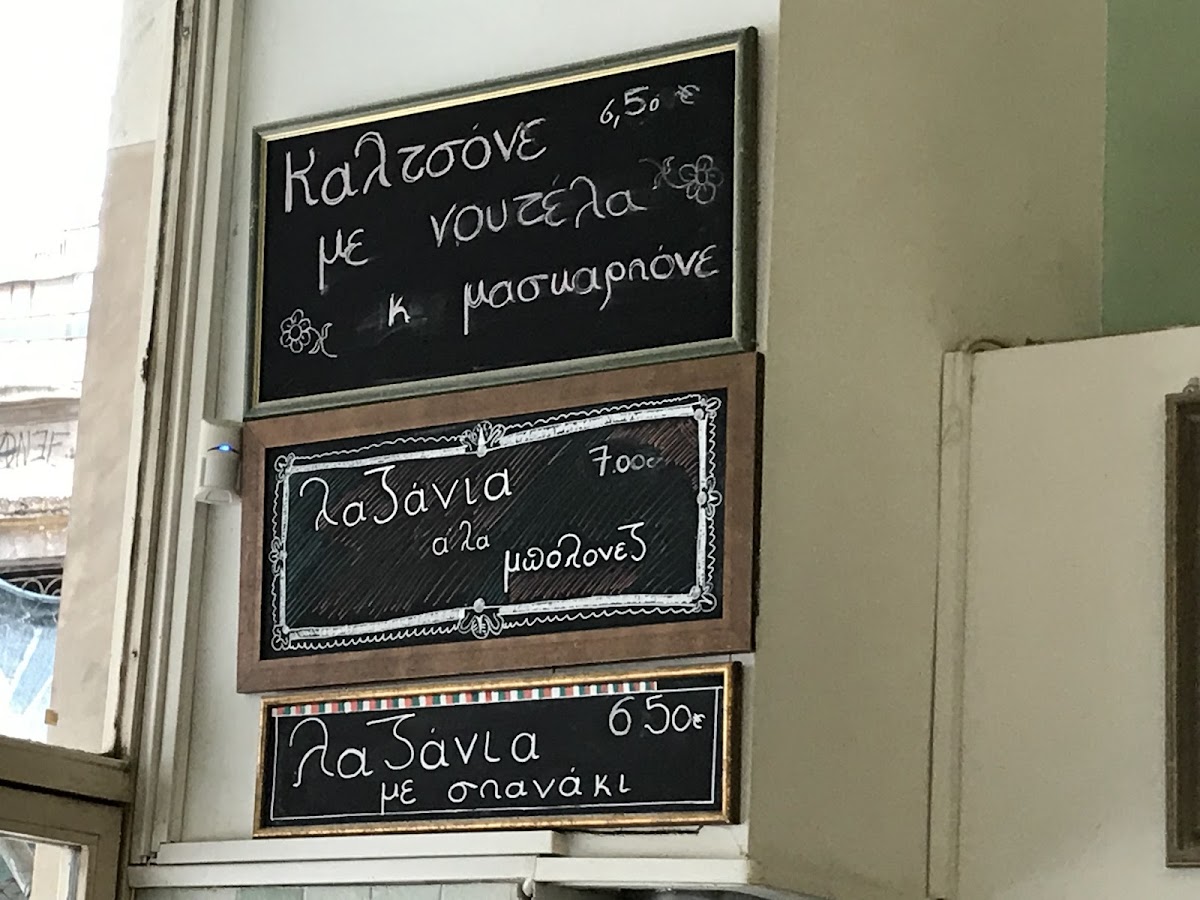 Καλτσόνε 6,50 €
με νουτέλα
κ μασκαρπόνε
λαζάνια 7.00€
α'λα
μπολονεζ
λαζάνια 650€
με σπανάκι